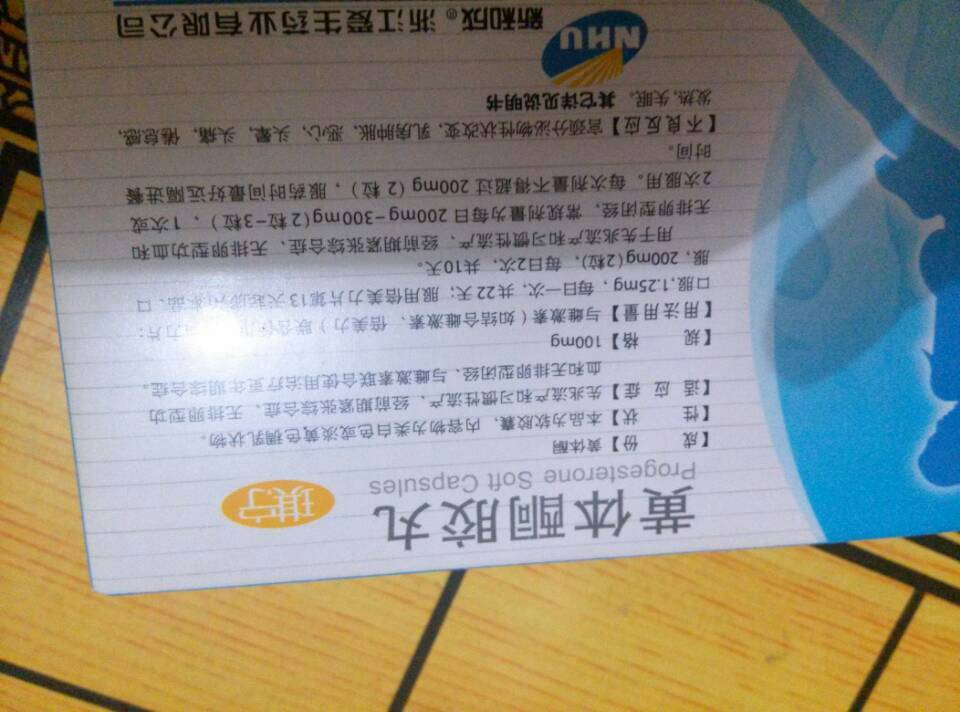 黄体酮胶丸
琪宁
Progesterone Soft Capsules
【成 份】黄体酮
【性 状】本品为软胶囊，内容物为类白色或淡黄色稠乳状物。
【适 应 症】先兆流产和习惯性流产、经前期紧张综合症、无排卵型功
血和无排卵型闭经、与雌激素联合使用治疗更年期综合症。
【规 格】100mg
【用法用量】与雌激素（如结合雌激素，倍美力）联合
口服，1.25mg，每日一次，共22天；服用倍美力片第13天起 口
服，200mg(2粒)，每日2次，共10天。
用于先兆流产和习惯性流产、经前期紧张综合症、无排卵型功血和
无排卵型闭经，常规剂量为每日200mg-300mg(2粒-3粒)，1次或
2次服用。每次剂量不得超过200mg（2粒），服药时间最好远隔进餐
时间。
【不良反应】宫颈分泌物性状改变，乳房肿胀，恶心，头晕，头痛，倦怠感，
发热，失眠。其它详见说明书
NHU
新和成® 浙江爱生药业有限公司